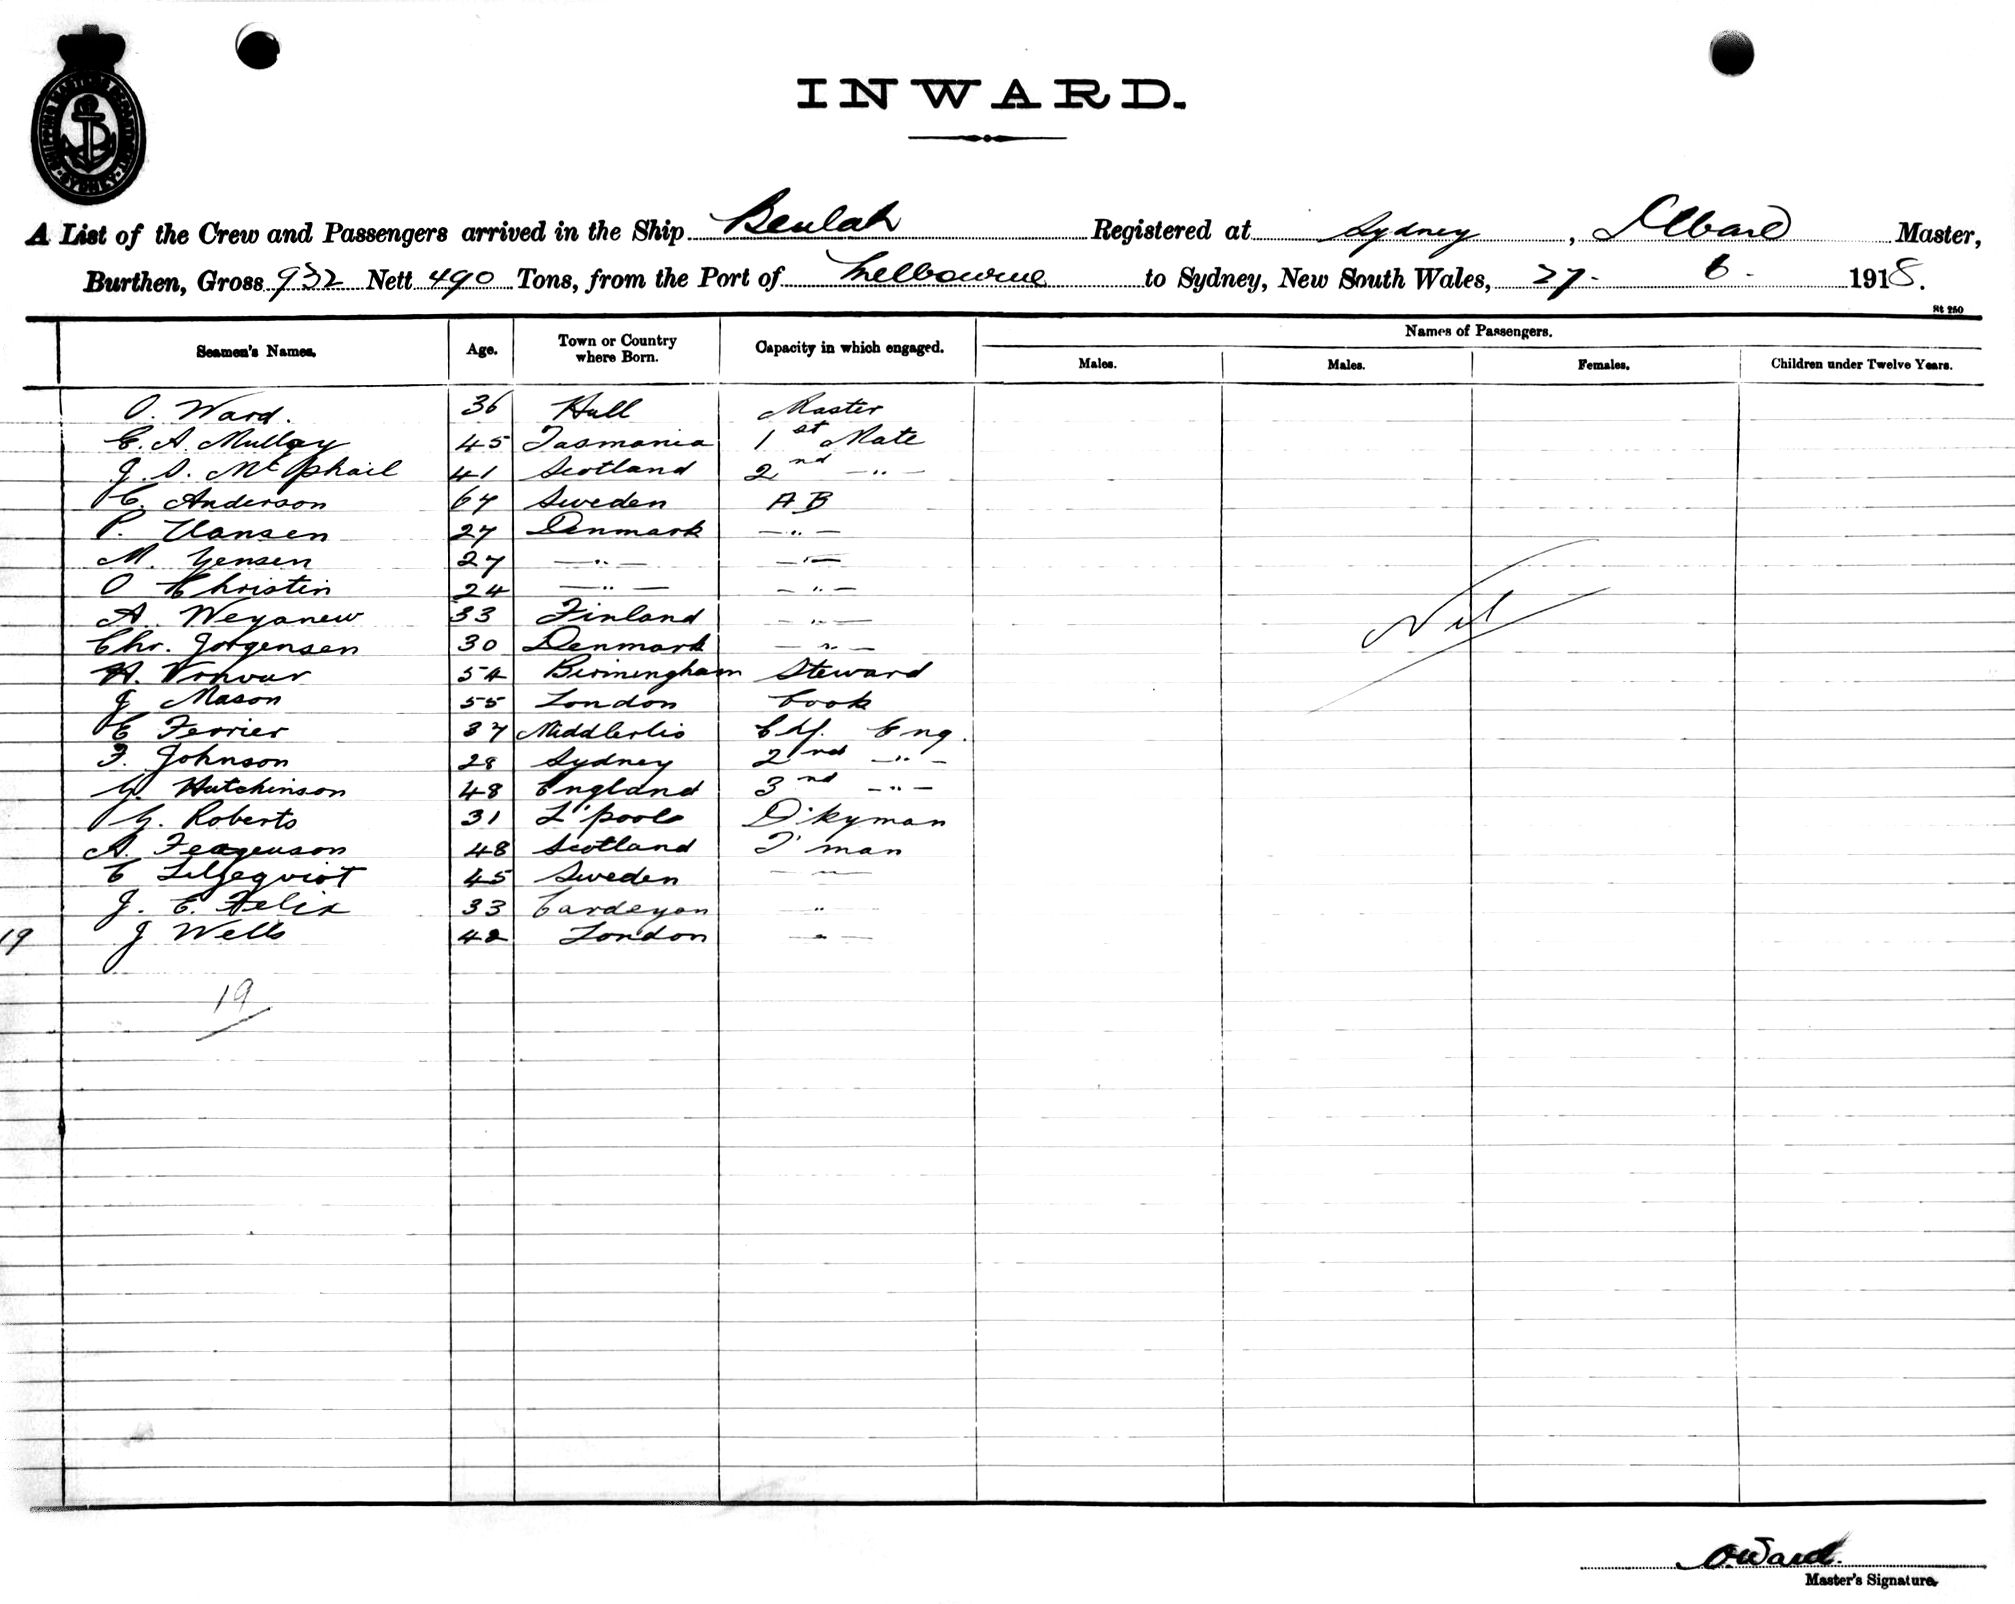 INWARD.
SHIPPING MASTER'S DEPARTMENT SYDNEY
A List of the Crew and Passengers arrived in the Ship Beulah Registered at Sydney, Ward Master,
Burthen, Gross 932 Nett 490 Tons, from the Port of Melbourne to Sydney, New South Wales, 27- 6- 1918.
St 250
Seamen's Names. Age. Town or Country where Born. Capacity in which engaged. Names of Passengers.
Males. Males. Females. Children under Twelve Years.
O. Ward. 36 Hull Master
C. A. Mullay 45 Tasmania 1st Mate
J. S. McPhail 41 Scotland 2nd - " -
C. Anderson 67 Sweden A B
P. Hansen 27 Denmark - " -
M. Yensen 27 - " - - " -
O Christin 24 - " - - " -
A. Weyanew 33 Finland - " -
Chr. Jorgensen 30 Denmark - " -
H. 54 Birmingham Steward
J Mason 55 London Cook
C Ferrier 37 Chf. Eng.
F. Johnson 28 Sydney 2nd - " -
G. Hutchinson 48 England 3nd - " -
G. Roberts 31 L'pool D'kyman
A. Feaguson 48 Scotland F'man
C Liljeqvist 45 Sweden - " -
J. E. Felix 33 "
19 J Wells 42 London - " -
Nil
19
O. Ward.
Master's Signature.